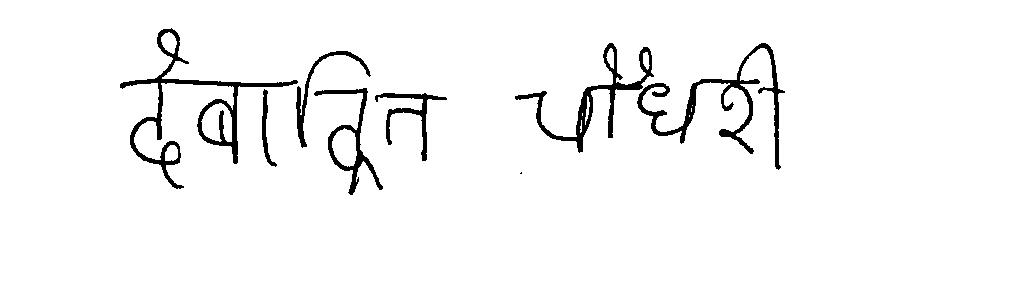 देबाद्रित चौधरी